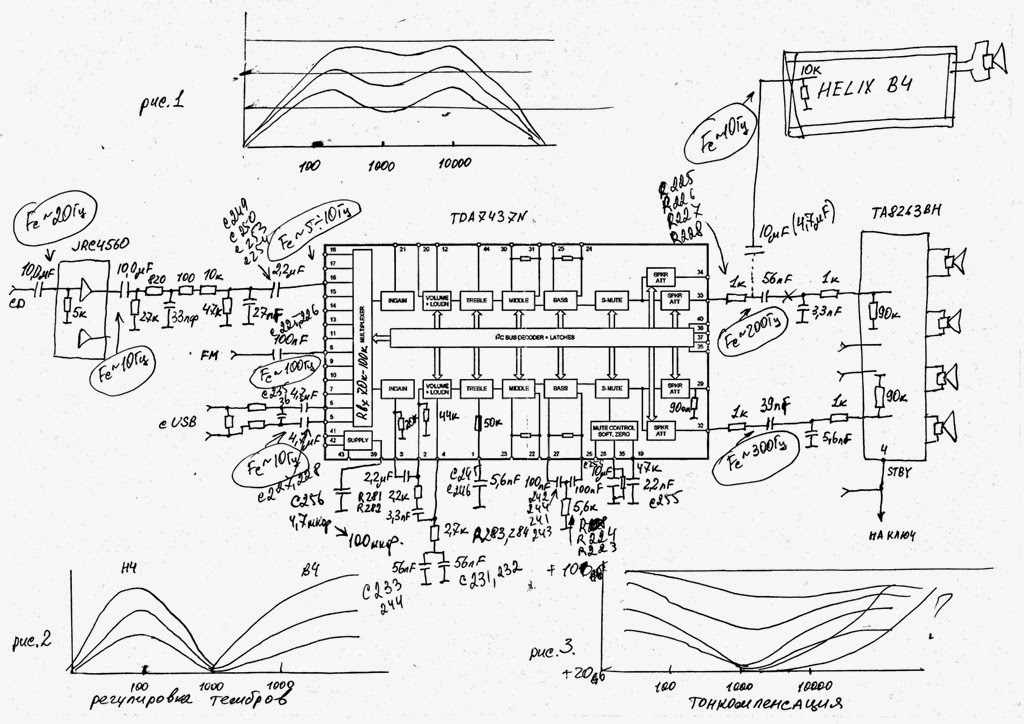 рис.1
100
1000
10000
10к
HELIX B4
Fc~10Гц
R225
R226
R227
R228
10µF (4,7µF)
TA8263BH
TDA7437N
Fc~20Гц
JRC4560
10,0µF
CD
5к
10,0µF
820
100
10к
27к
33пФ
47к
27пF
Fc~10Гц
C249
C250
C253
C254
Fc~5÷10Гц
2,2µF
C221,226
100nF
FM
Fc~100Гц
C235
36
4,7µF
с USB
4,7µF
Fc~10Гц
C227,228
MULTIPLEXER
Rвх 20к-100к
INGAIN
VOLUME + LOUDN
TREBLE
MIDDLE
BASS
S-MUTE
SPKR ATT
SPKR ATT
I²C BUS DECODER + LATCHES
INGAIN
VOLUME + LOUDN
TREBLE
MIDDLE
BASS
S-MUTE
SPKR ATT
SPKR ATT
SUPPLY
MUTE CONTROL SOFT. ZERO
44к
50к
900м
1к
56nF
1к
3,3nF
Fc~200Гц
90к
1к
39nF
1к
5,6nF
Fc~300Гц
90к
4
STBY
НА КЛЮЧ
C256
4,7мкф
100мкф.
R281
R282
2,2µF
2,2к
3,3nF
2,7к
R283,284
56nF
56nF
C233
244
C231,232
C245
C246
5,6nF
100nF
242
244
241
243
100nF
5,6к
R224
R223
10µF
47к
2,2nF
C255
рис.2
НЧ
ВЧ
100
1000
1000
регулировка тембров
рис.3.
+20дб
100
1000
10000
?
ТОНКОМПЕНСАЦИЯ